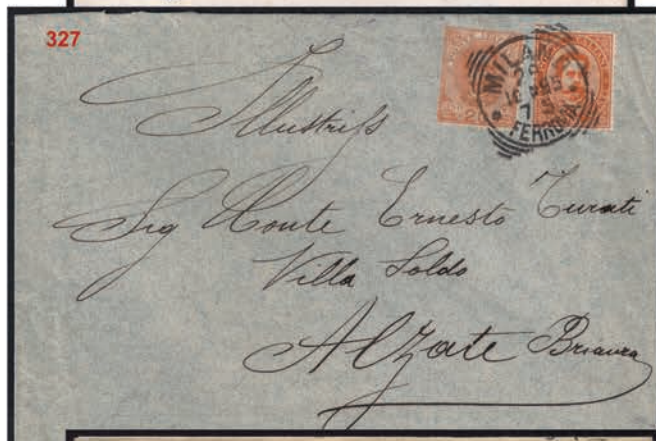 327
MILANO
FERROVIA
Illustriss
Sig Conte Ernesto Turati
Villa Soldo
Alzate Brianza